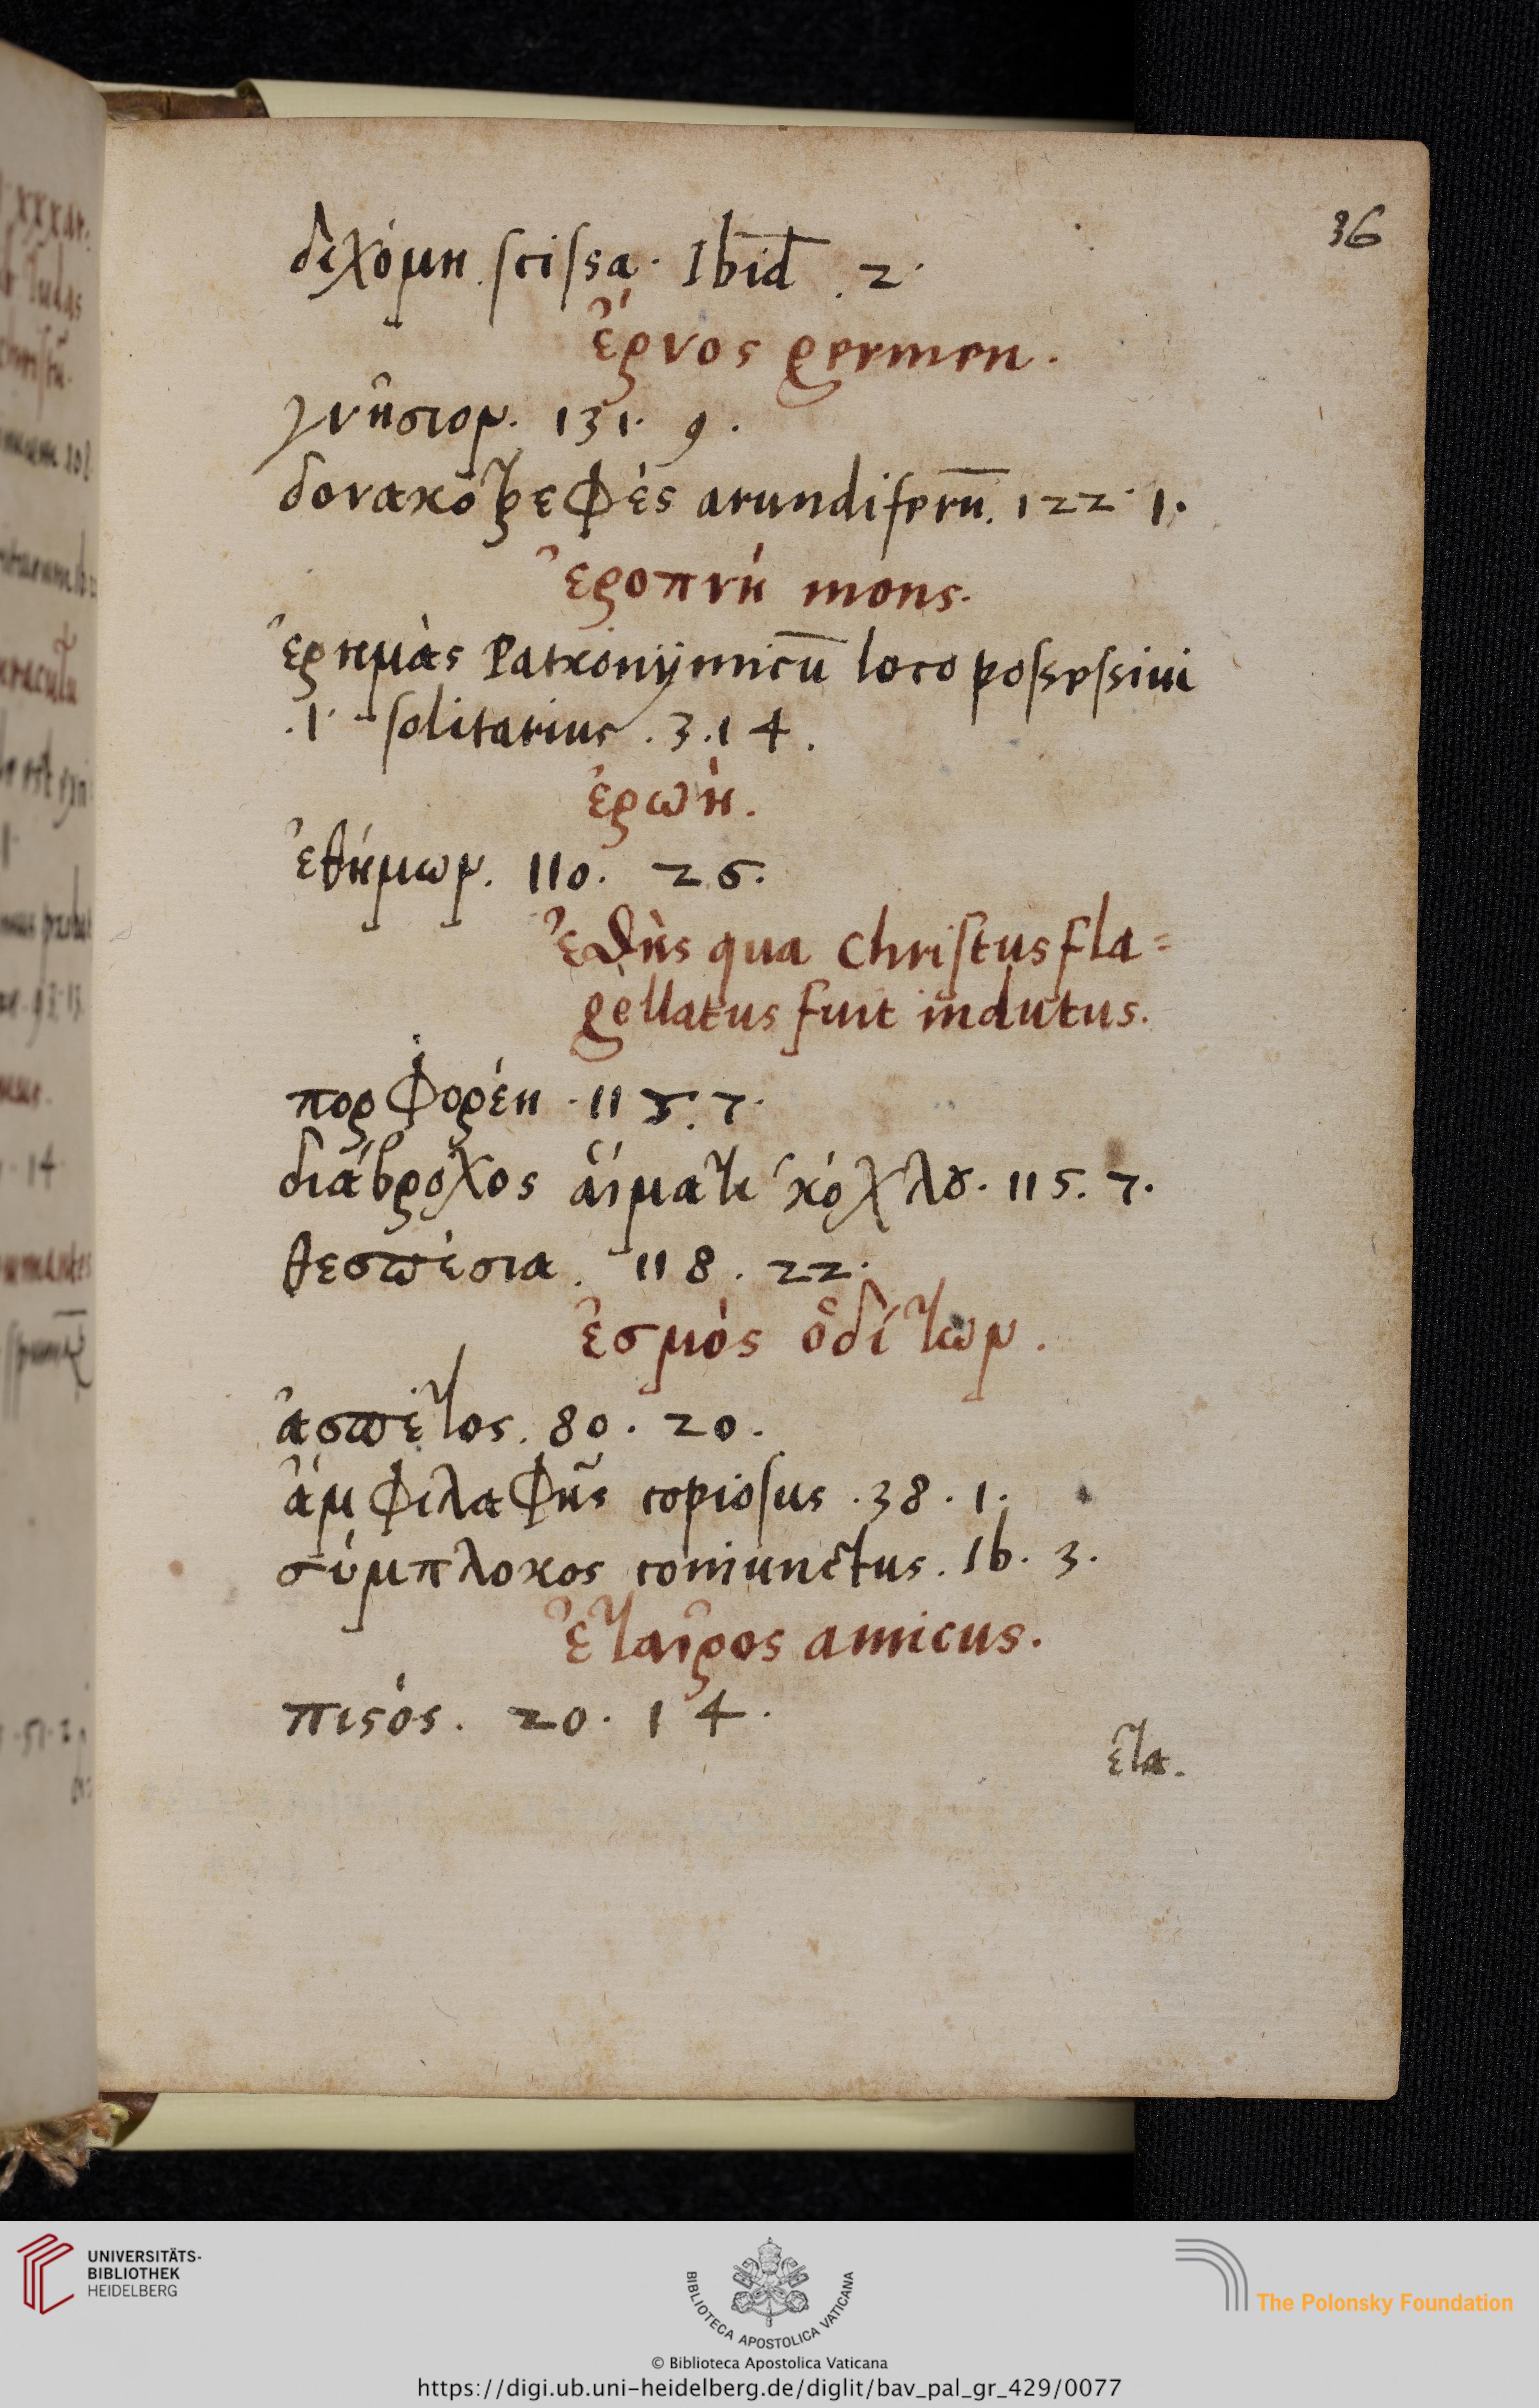 36
διχόμη scissa. Ibid 2.
ἔρνος germen.
γνήσιον. 131. 9.
δονακοτρεφές arundiferū. 122. 1.
ἐροπνή mons.
ἐρημὰς Patronymicū loco possessiui
.1. solitarius. 3. 14.
ἐρωή.
ἐθήμων. 110. 25.
ἐσθὴς qua Christus fla=
gellatus fuit indutus.
πορφορέη. 115. 7.
διάβροχος αἵματι κόχλου. 115. 7.
θεσπέσια. 118. 22.
ἐσμὸς ὁδίτων.
ἄσπετος. 80. 20.
ἀμφιλαφῆς copiosus. 38. 1.
σύμπλοκος coniunctus. Ib. 3.
ἑταῖρος amicus.
πιϛός. 20. 14.
ἑτα.
UNIVERSITÄTS-
BIBLIOTHEK
HEIDELBERG
BIBLIOTECA APOSTOLICA VATICANA
The Polonsky Foundation
© Biblioteca Apostolica Vaticana
https://digi.ub.uni-heidelberg.de/diglit/bav_pal_gr_429/0077